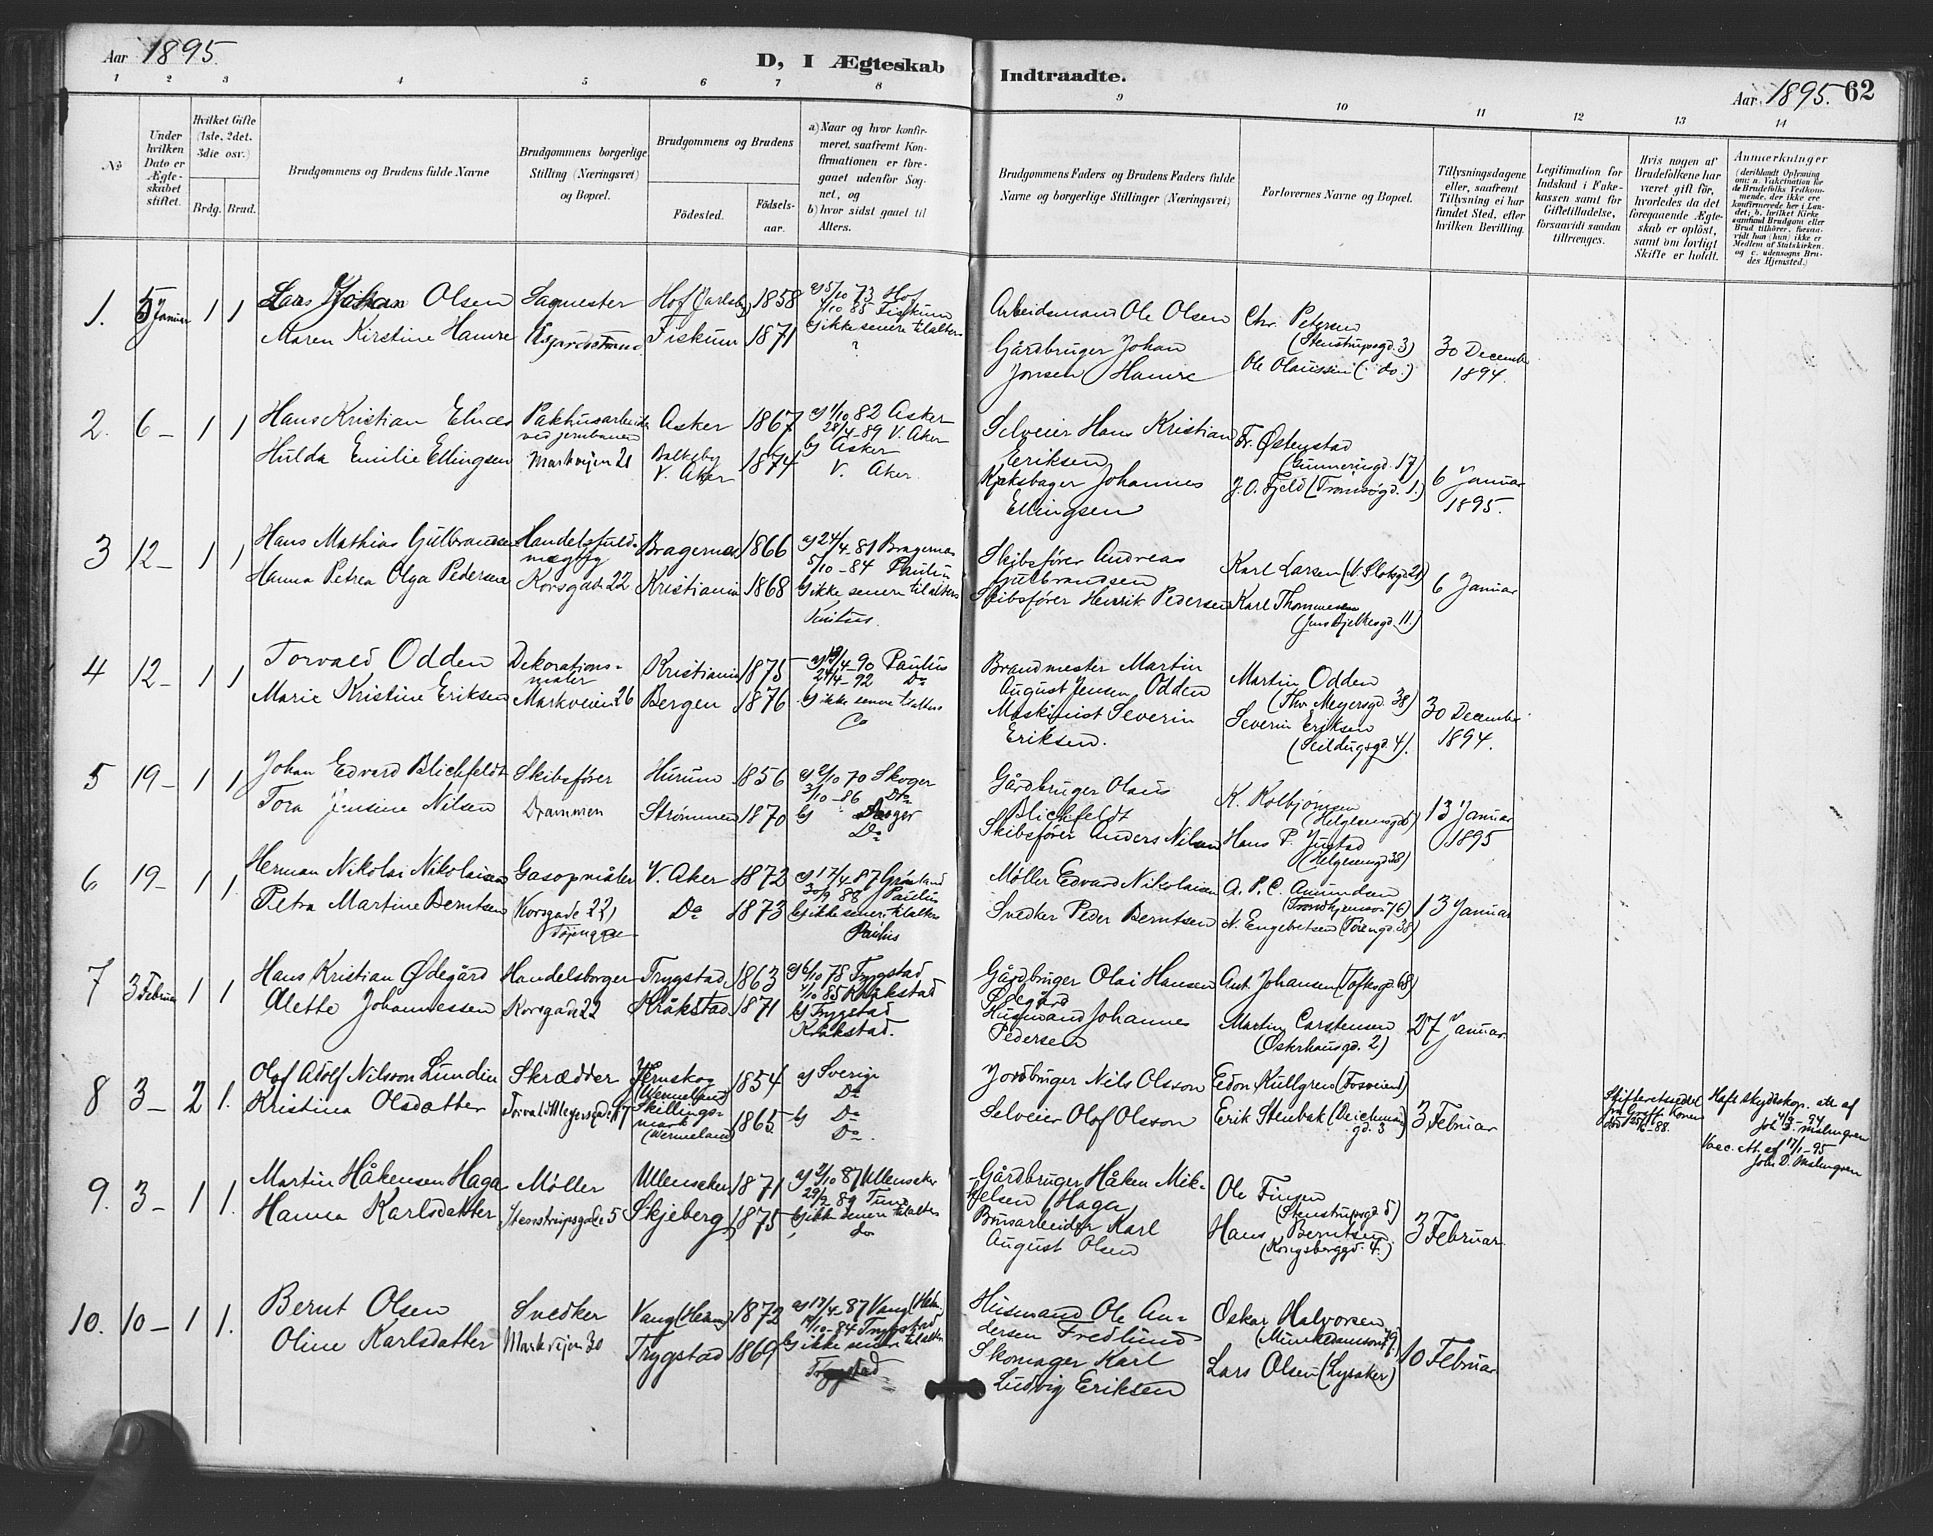 Aar 1895.
D, I Ægteskab
Indtraadte.
Aar 1895. 62
1 2 3 4 5 6 7 8 9 10 11 12 13 14
No
Under hvilken Dato er Ægteskabet stiftet.
Hvilket Gifte (1ste, 2det. 3die osv.)
Brdg. Brud.
Brudgommens og Brudens fulde Navne
Brudgommens borgerlige Stilling (Næringsvei) og Bopæl.
Brudgommens og Brudens
Födested. Födsels-aar.
a) Naar og hvor konfirmeret, saafremt Konfirmationen er foregaaet udenfor Sognet, og
b) hvor sidst gaaet til Alters.
Brudgommens Faders og Brudens Faders fulde Navne og borgerlige Stillinger (Næringsvei)
Forlovernes Navne og Bopæl.
Tillysningsdagene eller, saafremt Tillysning ei har fundet Sted, efter hvilken Bevilling.
Legitimation for Indskud i Enkekassen samt for Giftetilladelse, forsaavidt saadan tiltrænges.
Hvis nogen af Brudefolkene har været gift för, hvorledes da det foregaaende Ægteskab er oplöst, samt om lovligt Skifte er holdt.
Anmærkninger
1. 5 Januar 1 1
Lars Johan Olsen Sagmester Hof (Jarlsbg) 1858 a) 5/10 73 Hof
Maren Kirstine Hamre Fiskum 1871 1/10 85 Fiskum
b) ikke senere tilalters
Arbeidsmand Ole Olsen
Gårdbruger Johan
Jonsen Hamre
Chr. Petersen
(Stenstrupsgd. 3)
Ole Olaussen (do.)
30 December
1894.
2. 6 – 1 1
Hans Kristian Pakhusarbeider Asker 1867 a) 1/10 82 Asker
ved jernbanen 28/4-89 V. Aker
Hulda Emilie Ellingsen Markveien 21 Balkeby V. Aker 1874 b) Asker
V. Aker.
Selveier Hans Kristian
Eriksen
Johannes
Ellingsen
Fr. Østenstad
(Gunnerusgd. 17)
J. O. Fjeld (Tromsøgd. 1.)
6 Januar
1895.
3 12 – 1 1
Hans Mathias Gulbrandsen Handelsfuldmægtig Bragernæs 1866 a) 24/4-81 Bragernæs
5/10-84 Paulus
Hanna Petrea Olga Pedersen Korsgade 22 Kristiania 1868 b) ikke senere tilalters
Skibsfører Andreas
Gulbrandsen
Skibsfører Henrik Pedersen
Karl Larsen (N. Slotsgd. 21)
Karl Thommesen
(Jens Bjelkesgd. 11.)
6 Januar
4 12 – 1 1
Torvald Odden Dekorationsmaler Kristiania 1875 a) 13/4-90 Paulus
24/4-92 Do
Marie Kristine Eriksen Markveien 26 Bergen 1876 b) ikke senere tilalters
Brandmester Martin
August Jensen Odden
Maskinist Severin
Eriksen.
Martin Odden
(Thv Meyersgd. 38)
Severin Eriksen
(Seildugsgd. 4).
30 December
1894.
5 19 – 1 1
Johan Edvard Blichfeldt Skibsfører Hurum 1856 a) 2/10 70 Skoger
3/10-86 Do
Tora Jensine Nilsen Drammen Strømmen 1870 b)
Do
Gårdbruger Olaus
Blichfeldt
Skibsfører Anders Nilsen
K. Kolbjønsen
Hans P. Justad
(Helgesensgd. 38)
13 Januar
1895
6 19 – 1 1.
Herman Nikolai Nikolaisen Gasopmåler V. Aker 1872 a) 17/4-87 Grønland
30/9 88 Paulus
Petra Martine Berntsen Korsgade 22, Do 1873 b) ikke senere tilalters
Paulus
Møller Edvard Nikolaisen
Snedker Peder Berntsen
A. P. C. Amundsen
N. Engebretsen (Tøiengd. 38)
13 Januar
7 3 Februar 1 1
Hans Kristian Ødegård Handelsborger Trygstad 1863 a) 6/10 78 Trygstad
1/10 85 Kråkstad
Alette Johannessen Korsgade 22 Kråkstad 1871 b) Trygstad
Kråkstad.
Gårdbruger Olai Hansen
Ødegård
Husmand Johannes
Pedersen
Ant. Johansen (Toftesgd. 68)
Martin Carstensen
(Osterhausgd. 2)
27 Januar
8 3 – 2 1.
Olof Adolf Nilsson Lundin Skrædder Jernskog (Wermeland) 1854 a) Sverige
Do
Kristina Olsdatter Skillingsmark (Wermeland) 1865 b) Do
Do.
Jordbruger Nils Olsson
Selveier Olof Olsson
Edon Kullgren (Fosveien)
Erik Stenbak (Deichmansgd. 3
3 Februar
4/5-94
Joh D. Malmgren
Vacc. Att. af 17/1-95
Joh D. Malmgren
9. 3 – 1 1.
Martin Håkensen Haga Møller Ullensaker 1871 a) 2/10 87 Ullensaker
29/9 89 Tune
Hanna Karlsdatter Stenstrupsgade 5 Skjeberg 1875 b) ikke senere tilalters
do
Gårdbruger Håken Mikkelsen Haga
Karl
August Olsen
Ole Finsen
(Stenstrupsgd. 5)
Hans Berntsen
(Kongsberggd. 4.)
3 Februar
10. 10 – 1 1.
Bernt Olsen Snedker Vang (Hedm) 1872 a) 17/4-87 Vang (Hdm.
19/10-84 Trygstad
Oline Karlsdatter Markveien 30 Trygstad 1869 b) ikke senere tilalters
Trygstad
Husmand Ole Andersen Fredlund
Skomager Karl
Ludvig Eriksen
Oskar Halvorsen
(Munkedamsvn 79.)
Lars Olsen (Lysaker)
10 Februar